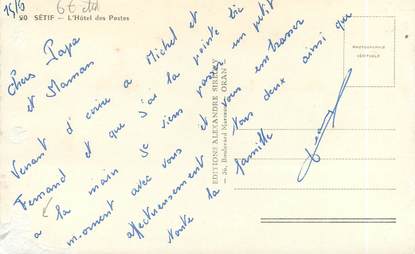 15/6
6E
20 SÉTIF — L'Hôtel des Postes
Chers Papa
et Maman
Venant d'écrire a Michel et
Fernand et que j'ai la pointe bic
a la main je viens passer un petit
moment avec vous et vous embrasser
affectueusement vous deux ainsi que
toute la famille
EDITIONS ALEXANDRE
26, Boulevard ORAN
PHOTOGRAPHIE
VÉRITABLE